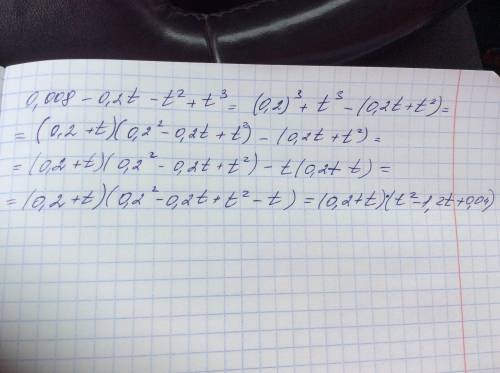 0,008 - 0,2t - t² + t³ = (0,2)³ + t³ - (0,2t + t²) =
= (0,2 + t)(0,2² - 0,2t + t²) - (0,2t + t²) =
= (0,2 + t)(0,2² - 0,2t + t²) - t(0,2+ t) =
= (0,2 + t)(0,2² - 0,2t + t² - t) = (0,2 + t)(t² - 1,2t + 0,04)